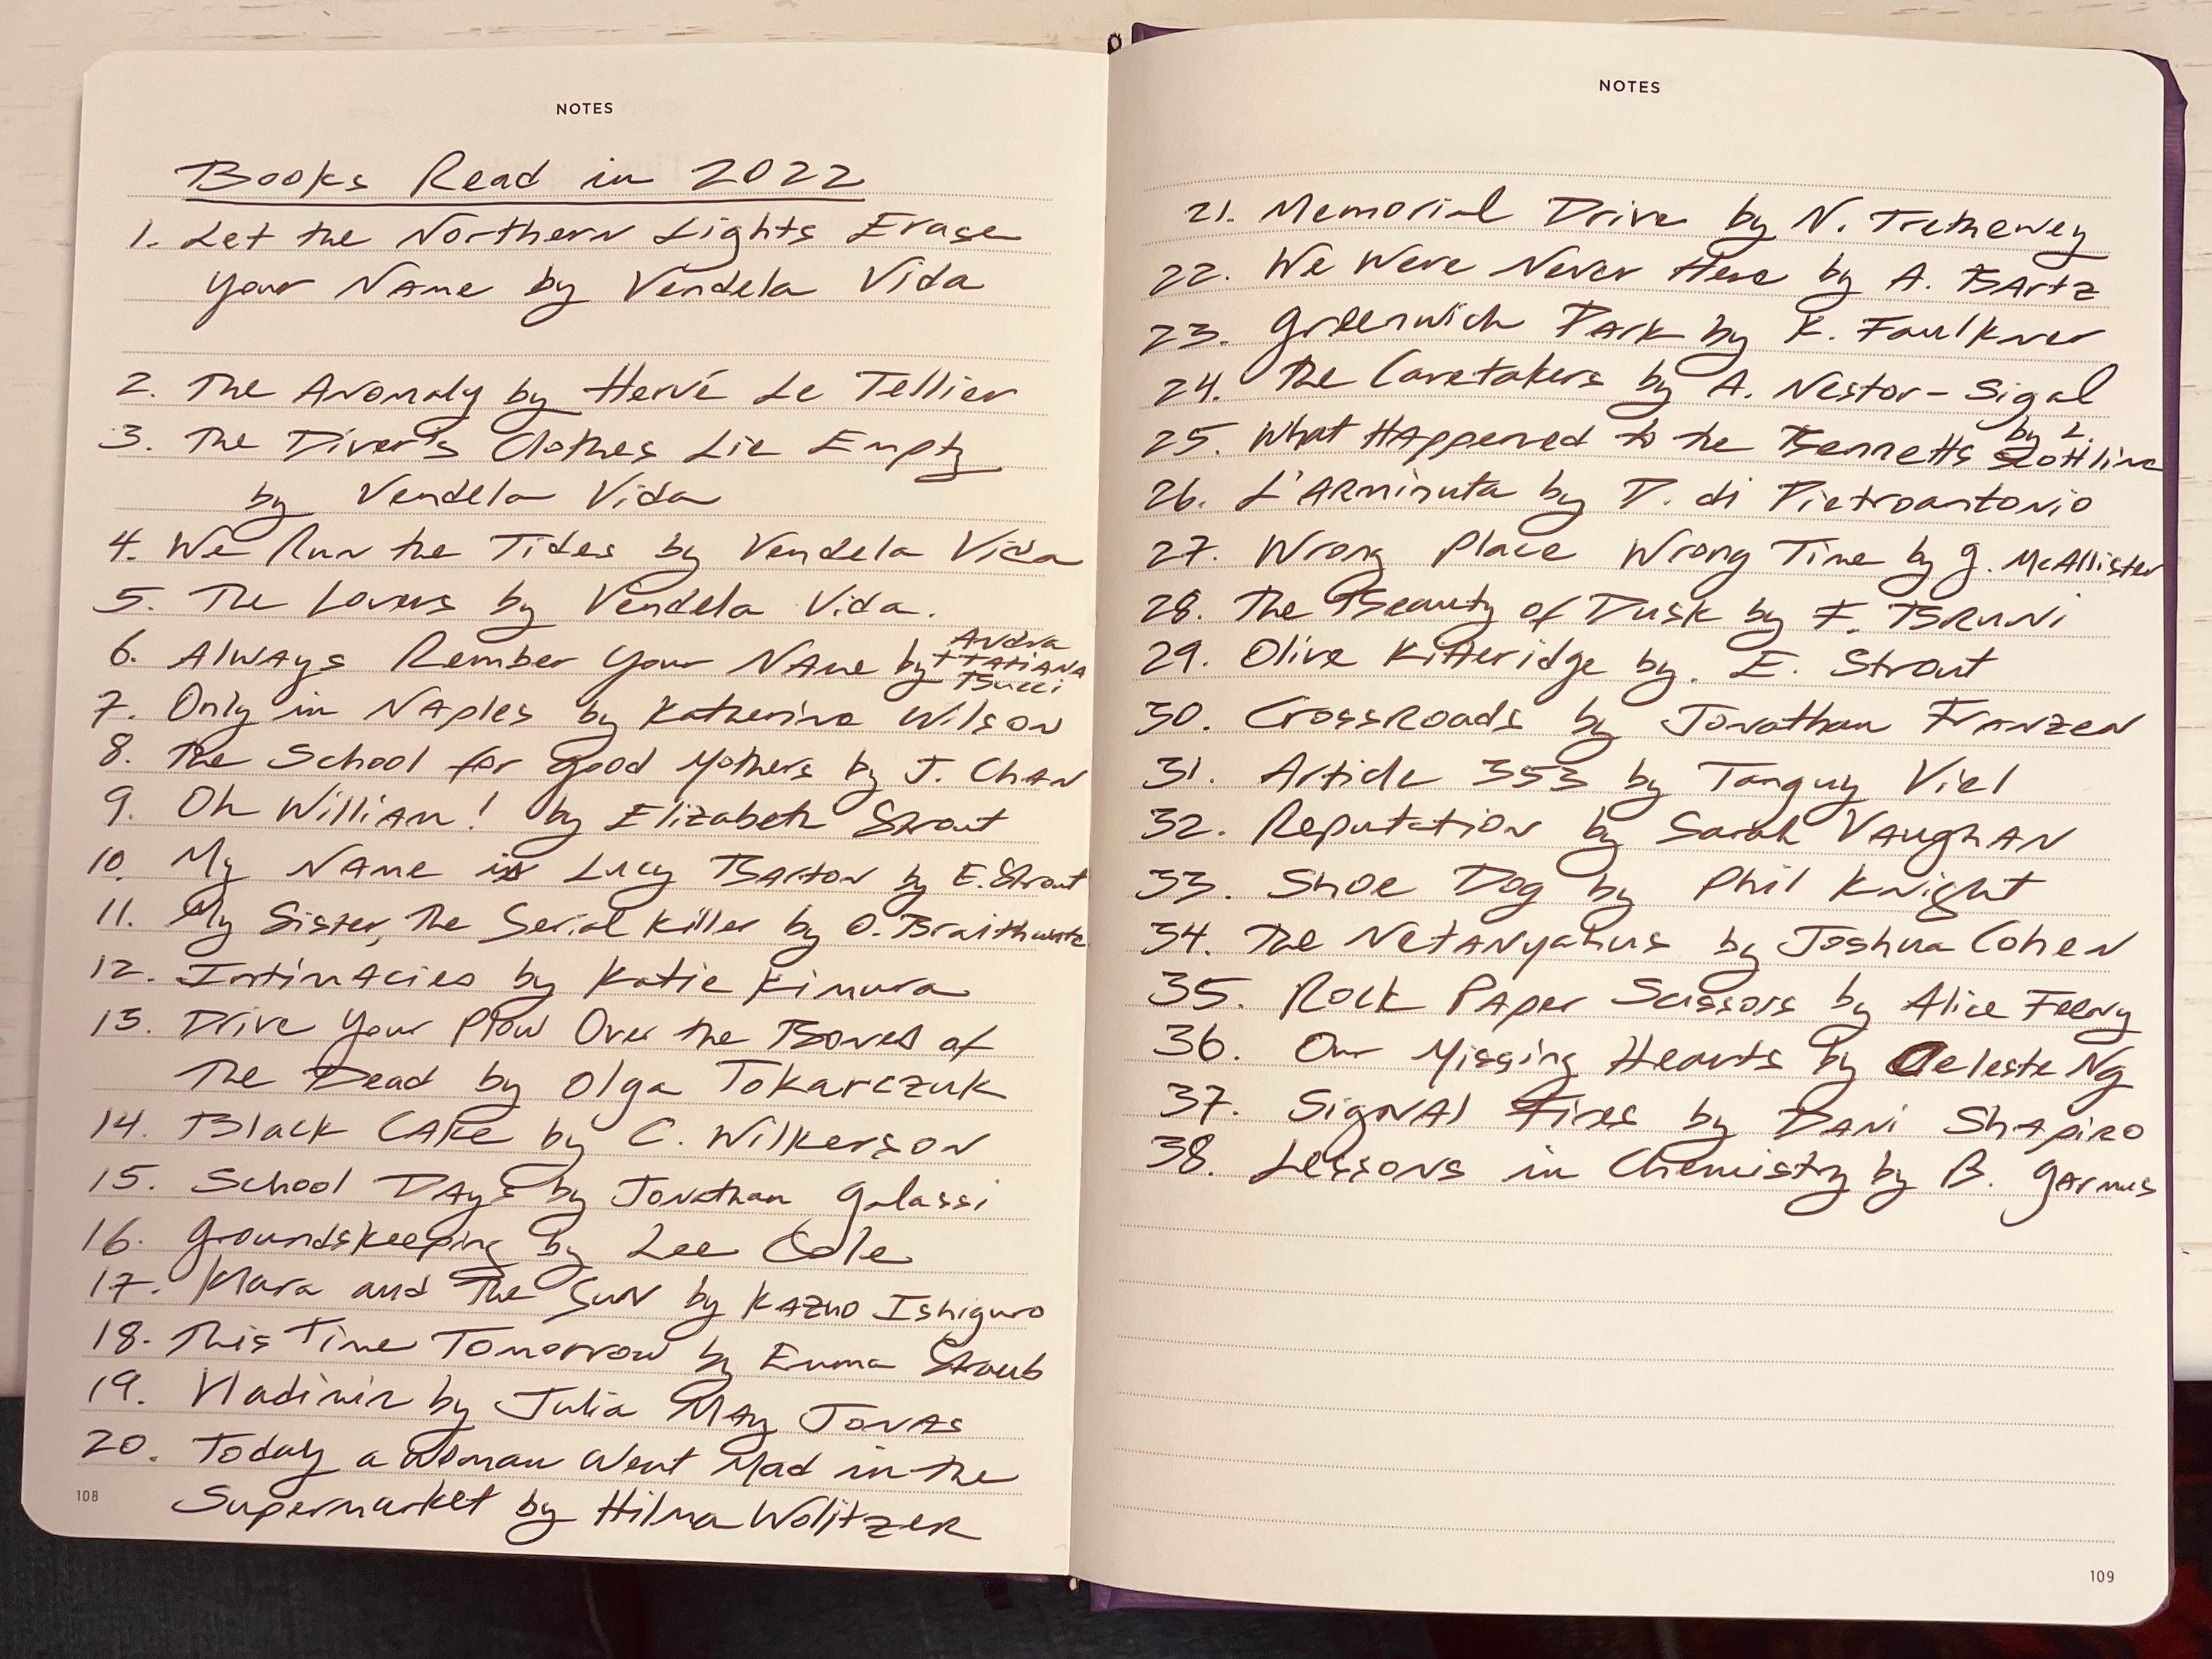 NOTES
Books Read in 2022
1. Let the Northern Lights Erase
Your Name by Vendela Vida
2. The Anomaly by Hervé Le Tellier
3. The Diver's Clothes Lie Empty
by Vendela Vida
4. We Run the Tides by Vendela Vida
5. The Lovers by Vendela Vida.
6. Always Rember Your Name by Andra + Tatiana Bucci
7. Only in Naples by Katherine Wilson
8. The School for Good Mothers by J. Chan
9. Oh William! by Elizabeth Strout
10. My Name is Lucy Barton by E. Strout
11. My Sister, The Serial Killer by O. Braithwaite
12. Intimacies by Katie Kimura
13. Drive Your Plow Over the Bones of
The Dead by Olga Tokarczuk
14. Black Cake by C. Wilkerson
15. School Days by Jonathan Galassi
16. Groundskeeping by Lee Cole
17. Klara and The Sun by Kazuo Ishiguro
18. This Time Tomorrow by Emma Straub
19. Vladimir by Julia May Jonas
20. Today a Woman Went Mad in the
Supermarket by Hilma Wolitzer
108
NOTES
21. Memorial Drive by N. Trethewey
22. We Were Never Here by A. Bartz
23. Greenwich Park by K. Faulkner
24. The Caretakers by A. Nestor-Sigal
25. What Happened to the Bennetts by L. Scottline
26. L'Arminuta by D. di Pietroantonio
27. Wrong Place Wrong Time by G. McAllister
28. The Beauty of Dusk by F. Bruni
29. Olive Kitteridge by. E. Strout
30. Crossroads by Jonathan Franzen
31. Article 353 by Tanguy Viel
32. Reputation by Sarah Vaughan
33. Shoe Dog by Phil Knight
34. The Netanyahus by Joshua Cohen
35. Rock Paper Scissors by Alice Feeny
36. Our Missing Hearts by Celeste Ng
37. Signal Fires by Dani Shapiro
38. Lessons in Chemistry by B. Garmus
109